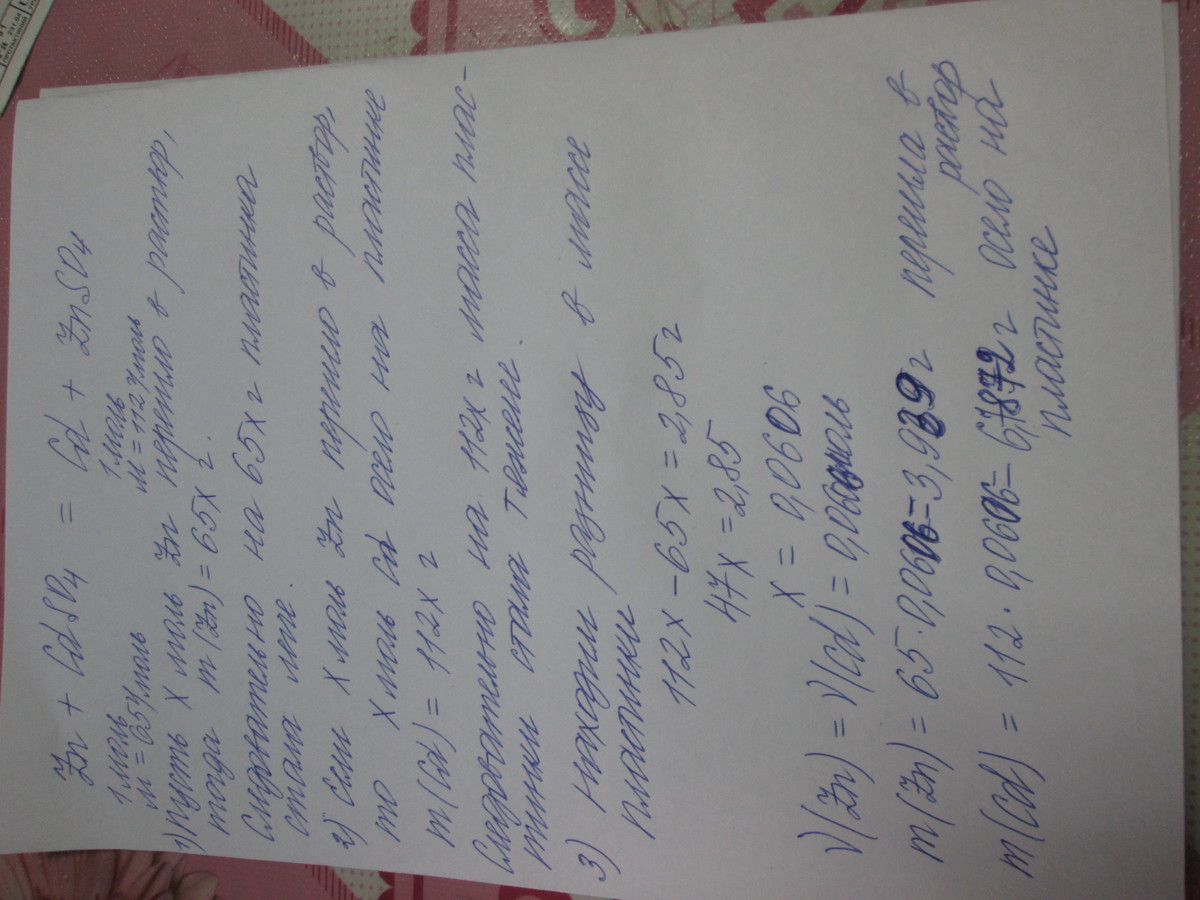 Zn + CdSO4 = Cd + ZnSO4
1 моль 1 моль
M = 65 г/моль M = 112 г/моль
1) Пусть x моль Zn перешло в раствор,
тогда m(Zn) = 65x г.
Следовательно на 65x г пластинка
стала легче.
2) Если x моль Zn перешло в раствор,
то x моль Cd осело на пластинке
m(Cd) = 112x г
Следовательно на 112x г масса плас-
тинки стала тяжелее.
3) Находим разницу в массе
пластинки
112x - 65x = 2,85 г
47x = 2,85
x = 0,0606
ν(Zn) = ν(Cd) = 0,0606 моль
m(Zn) = 65 · 0,0606 = 3,939 г перешла в
раствор
m(Cd) = 112 · 0,0606 = 6,7872 г осело на
пластинке